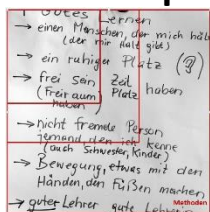 Gutes Lernen
→ einen Menschen, der mich hält
(der mir Halt gibt)
→ ein ruhiger Platz (3)
→ frei sein Zeit haben
(Freiraum Platz
haben)
→ nicht fremde Person
jemand, den ich kenne
(auch Schwester, Kinder)
→ Bewegung, etwas mit den
Händen, den Füßen machen
→ guter Lehrer gute
Methoden